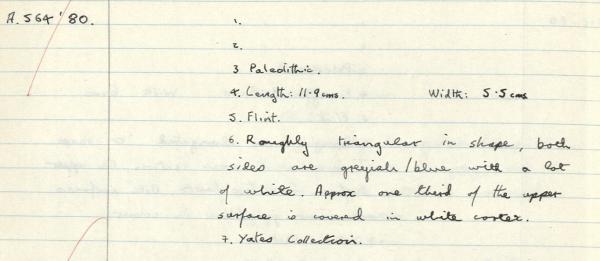 A.564'80.
1.
2.
3 Paleolithic.
4. Length: 11.9cms. Width: 5.5cms
5. Flint.
6. Roughly triangular in shape, both
sides are greyish/blue with a lot
of white. Approx one third of the upper
surface is covered in white cortex.
7. Yates Collection.